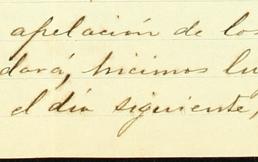 apelación de los
dará, hicimos lu
el día siguiente,